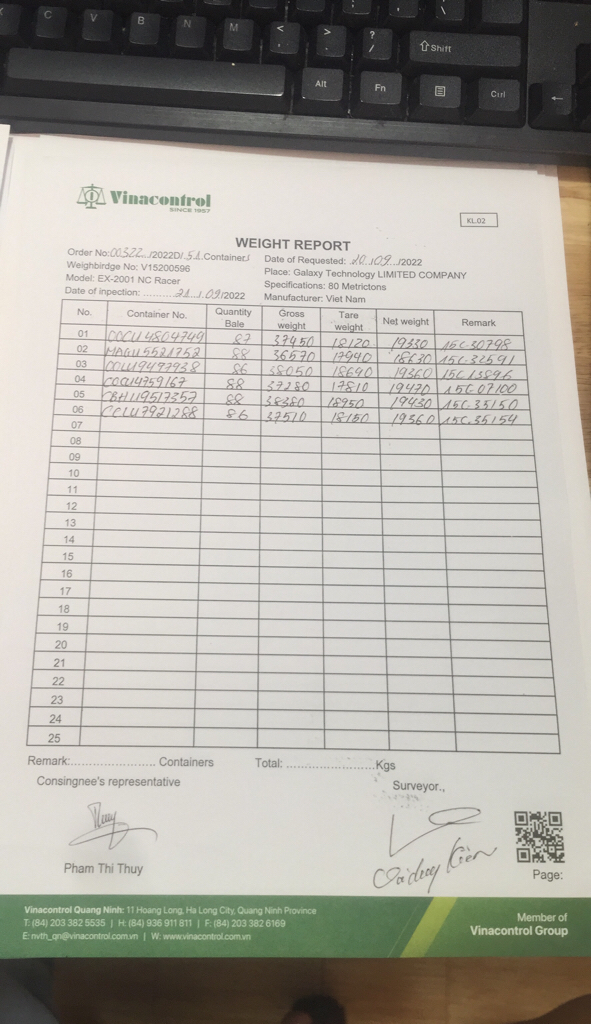 C
V
B
N
M
<
>
?
/
Shift
Alt
Fn
Ctrl
Vinacontrol
SINCE 1957
KL.02
WEIGHT REPORT
Order No:00322../2022D/.51.Container/ Date of Requested: .20.109../2022
Weighbirdge No: V15200596 Place: Galaxy Technology LIMITED COMPANY
Model: EX-2001 NC Racer Specifications: 80 Metrictons
Date of inpection: ..........21../.09/2022 Manufacturer: Viet Nam
No. Container No. Quantity Bale Gross weight Tare weight Net weight Remark
01 COCU4804749 87 37450 18120 19330 15C-30798
02 MAGU5521752 88 36570 17940 18630 15C-32591
03 86 38050 18690 19360 15C 13896
04 88 37280 17810 19470 15C-07100
05 88 38380 18950 19430 15C-35150
06 CCLU7921288 86 37510 18150 19360 15C.35154
07
08
09
10
11
12
13
14
15
16
17
18
19
20
21
22
23
24
25
Remark:........................ Containers Total: ........................Kgs
Consingnee's representative Surveyor.,
Thuy
Pham Thi Thuy
Page:
Vinacontrol Quang Ninh: 11 Hoang Long, Ha Long City, Quang Ninh Province
T: (84) 203 382 5535 | H: (84) 936 911 811 | F: (84) 203 382 6169
E: nvth_qn@vinacontrol.com.vn | W: www.vinacontrol.com.vn
Member of
Vinacontrol Group